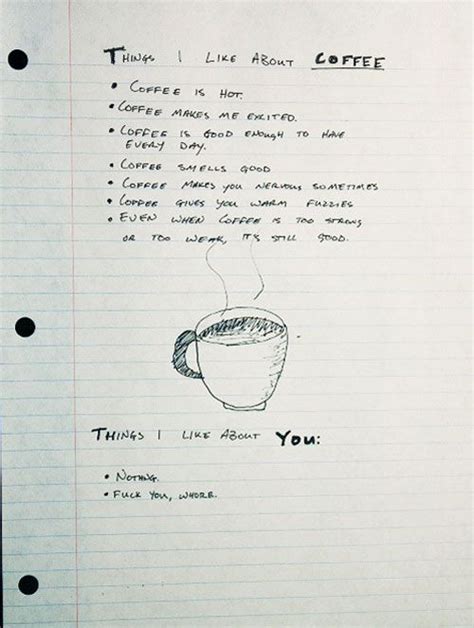 THINGS I LIKE ABOUT COFFEE
• COFFEE IS HOT.
• COFFEE MAKES ME EXCITED.
• COFFEE IS GOOD ENOUGH TO HAVE
EVERY DAY.
• COFFEE SMELLS GOOD
• COFFEE MAKES YOU NERVOUS SOMETIMES
• COFFEE GIVES YOU WARM FUZZIES
• EVEN WHEN COFFEE IS TOO STRONG
OR TOO WEAK, IT'S STILL GOOD.
THINGS I LIKE ABOUT YOU:
• NOTHING.
• FUCK YOU, WHORE.